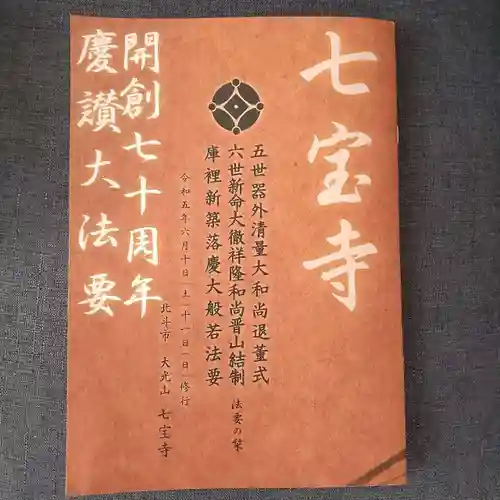 七宝寺
五世器外清量大和尚退董式
六世新命大徹祥隆和尚晋山結制 法要の栞
庫裡新築落慶大般若法要
令和五年六月十日(土)十一日(日)修行
北斗市 大光山 七宝寺
開創七十周年
慶讃大法要